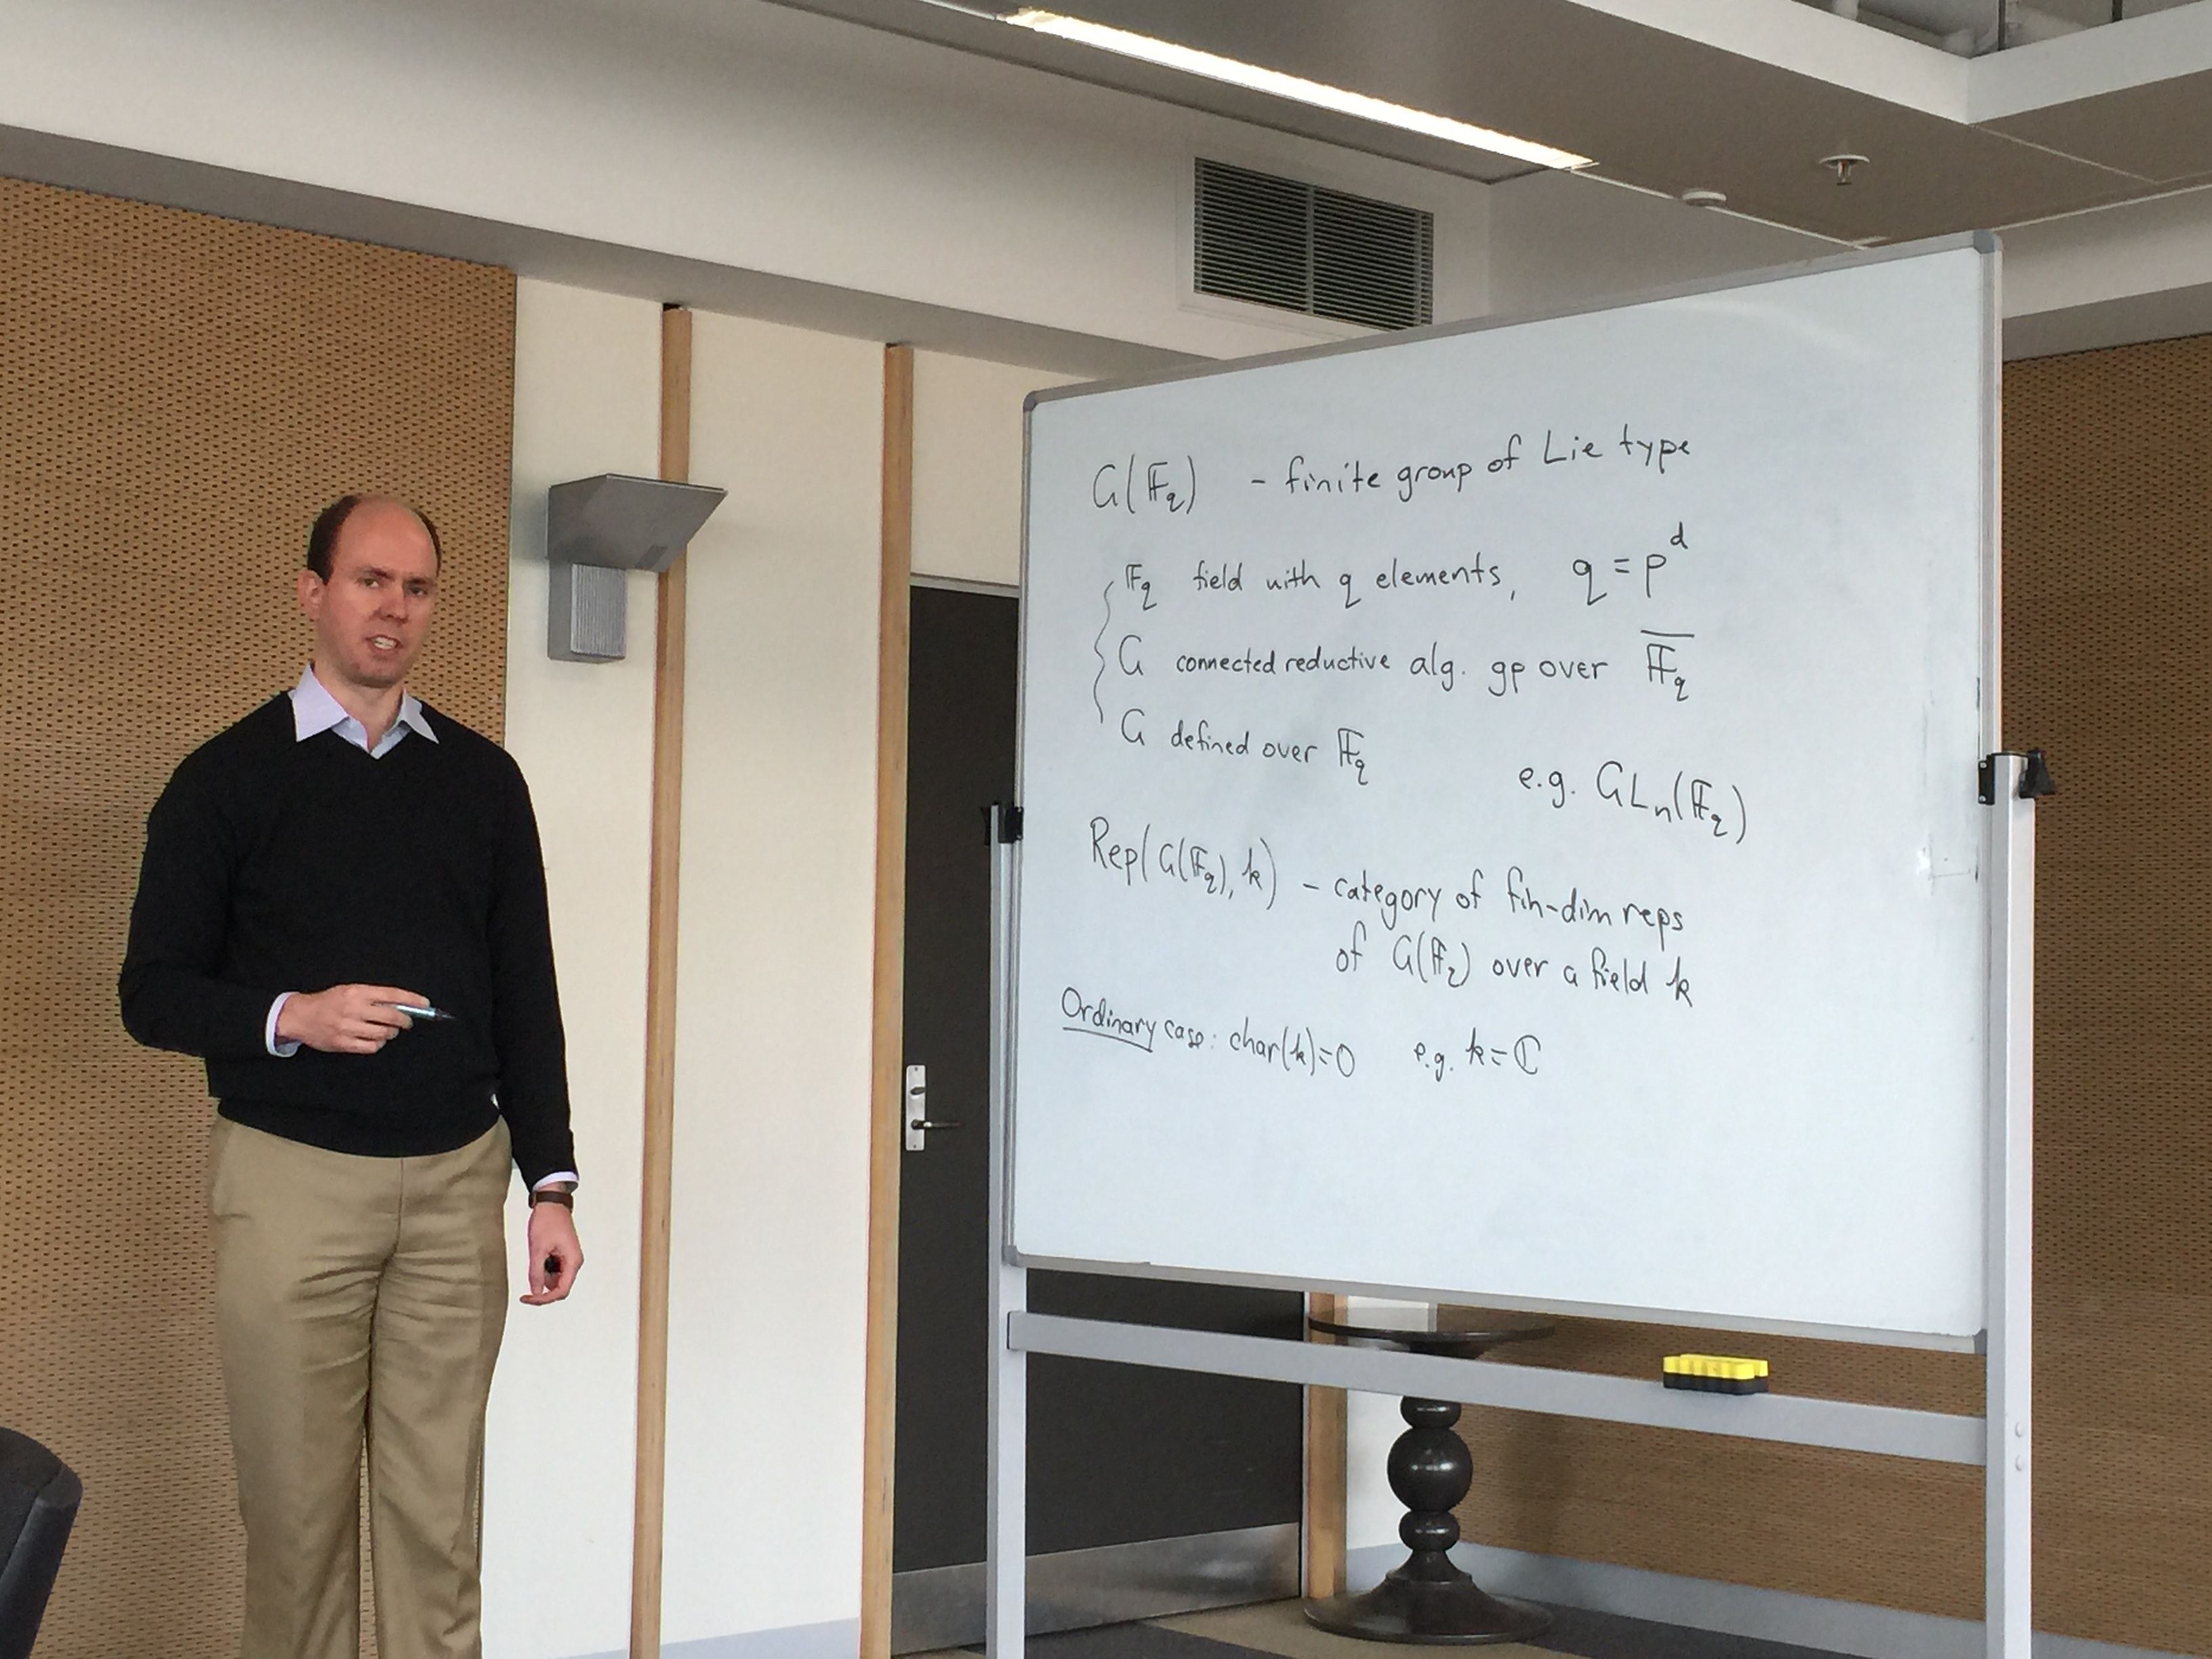 G(𝔽q) - finite group of Lie type
𝔽q field with q elements, q = p^d
G connected reductive alg. gp over 𝔽̅q
G defined over 𝔽q
e.g. GLn(𝔽q)
Rep(G(𝔽q), k) - category of fin-dim reps
of G(𝔽q) over a field k
Ordinary case: char(k)=0 e.g. k=ℂ